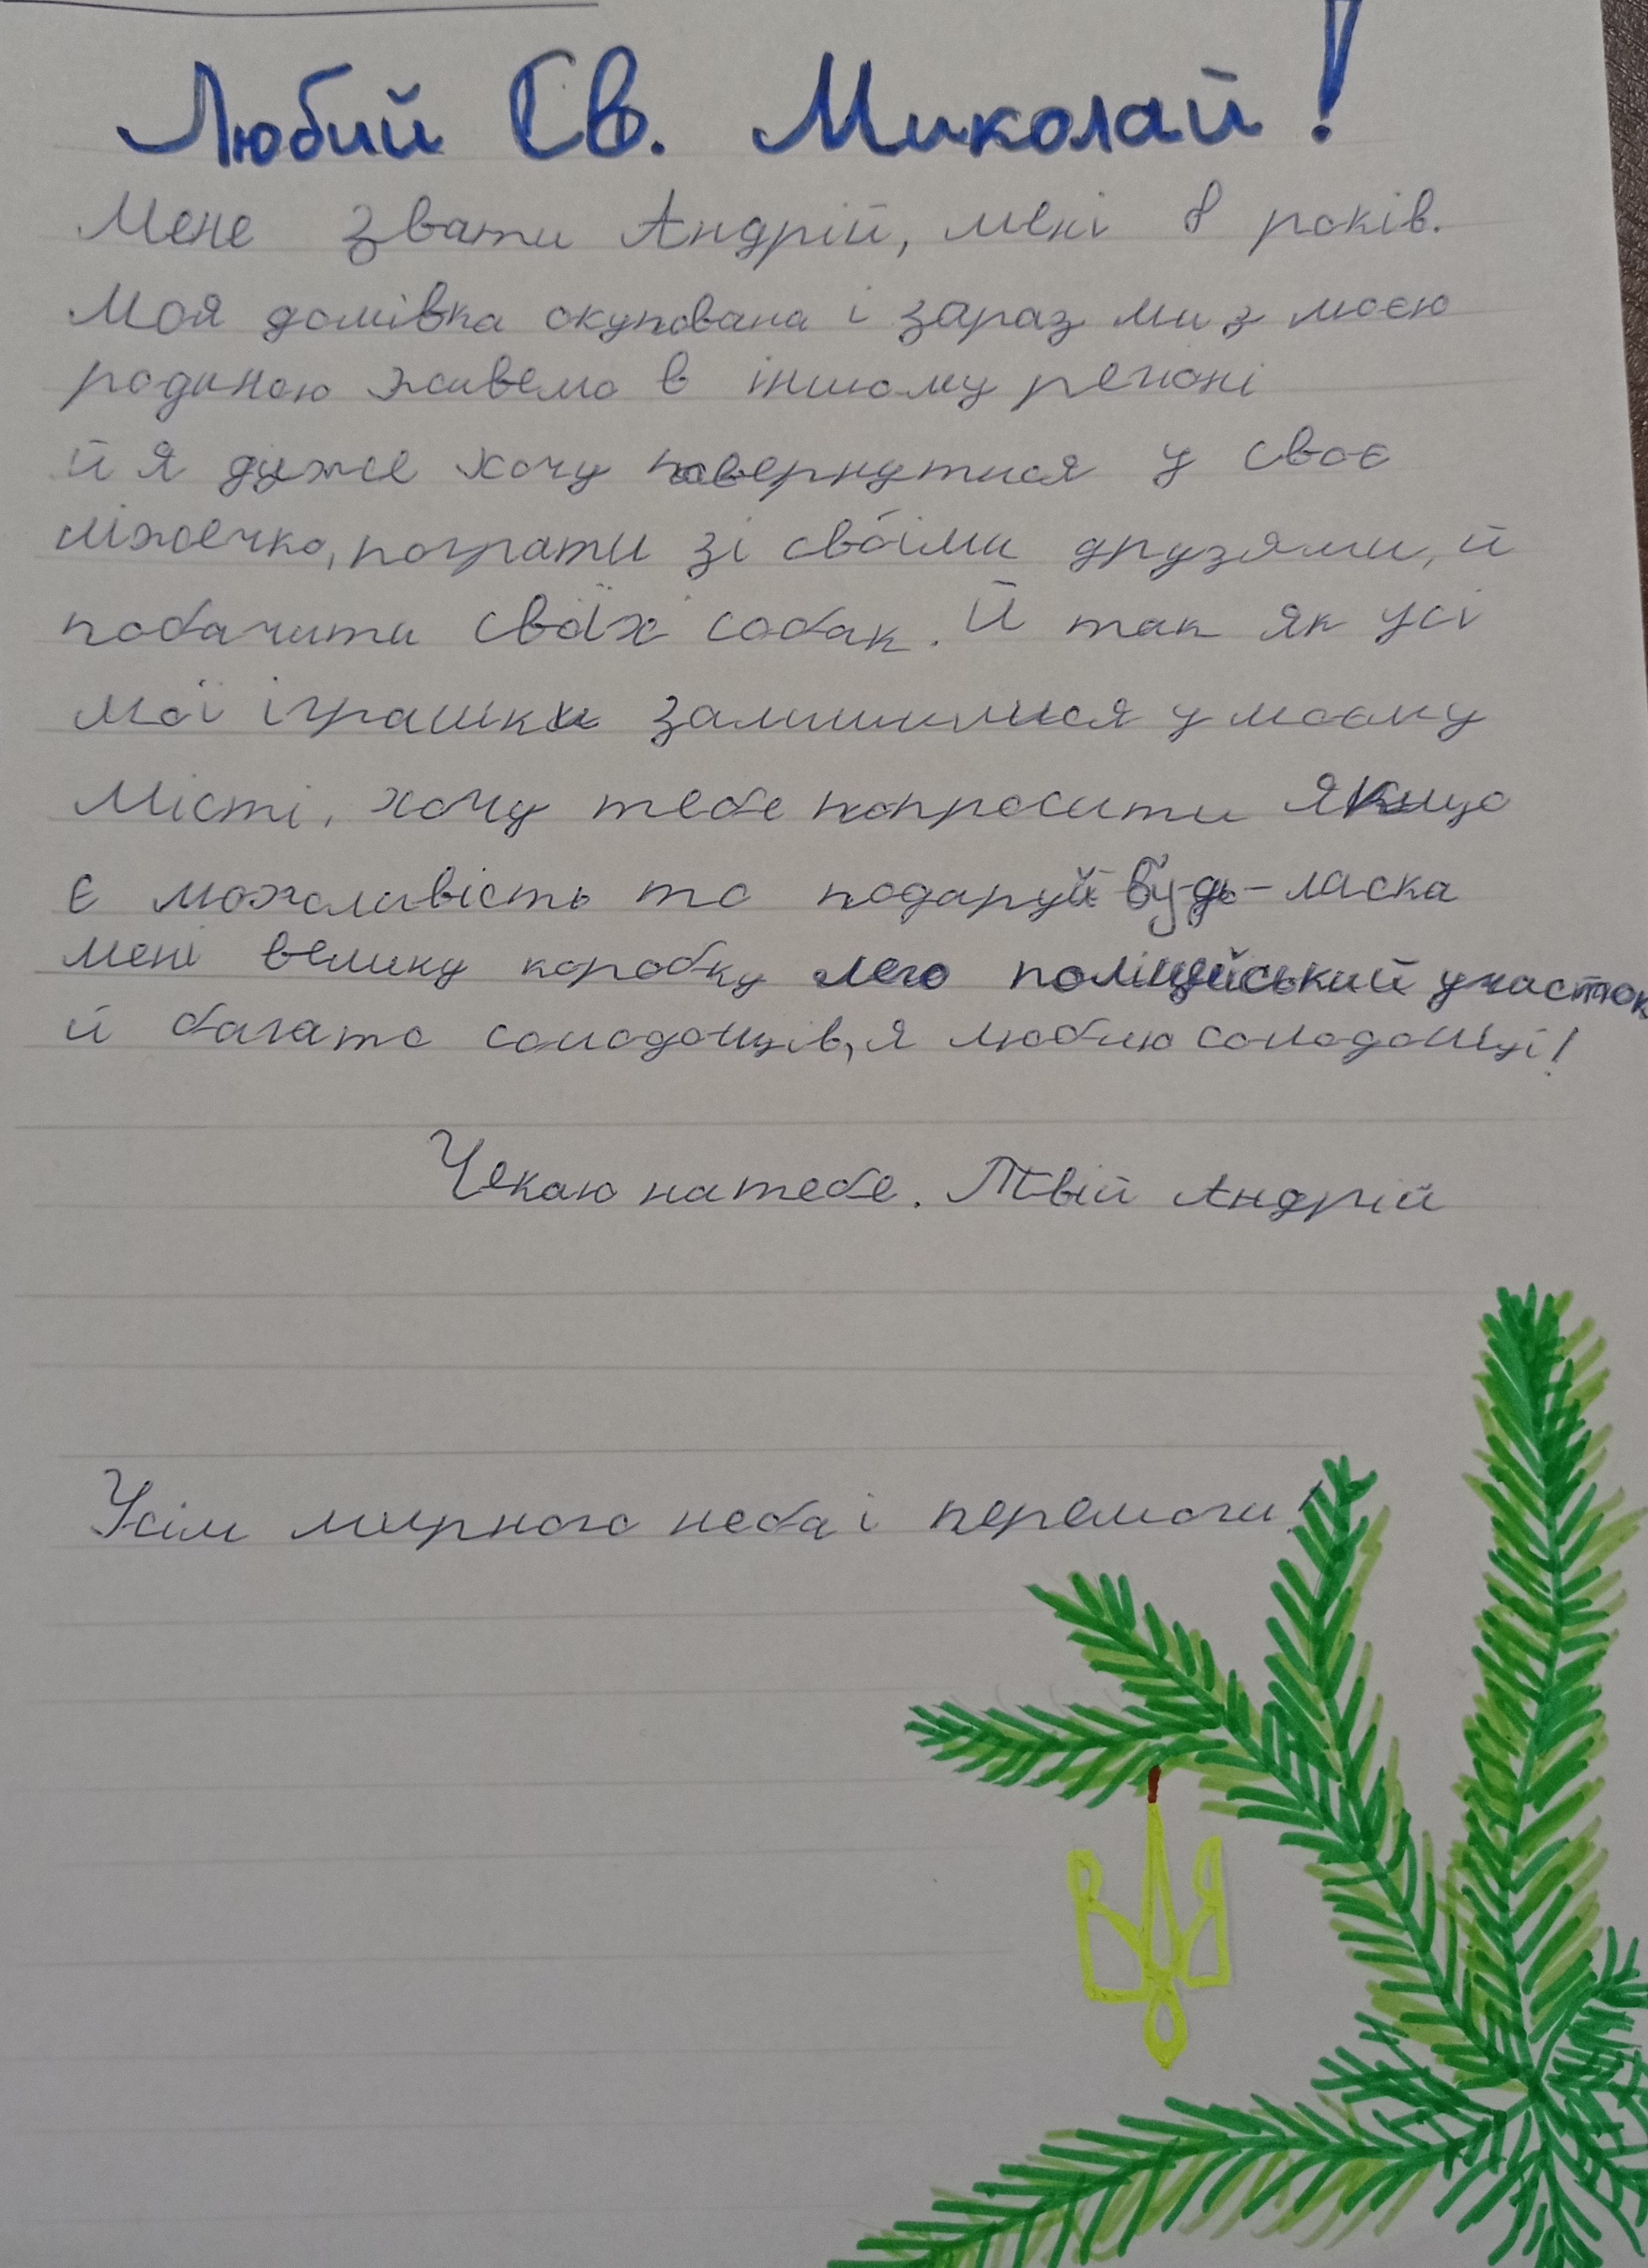 Любий Св. Миколай!
Мене звати Андрій, мені 8 років.
Моя домівка окупована і зараз ми з моєю
родиною живемо в іншому регіоні
й я дуже хочу повернутися у своє
ліжечко, пограти зі своїми друзями, й
побачити своїх собак. Й так як усі
мої іграшки залишилися у моєму
місті, хочу тебе попросити якщо
є можливість то подаруй будь-ласка
мені велику коробку лего поліцейський участок
й багато солодощів, я люблю солодощі!
Чекаю на тебе. Твій Андрій
Усім мирного неба і перемоги!